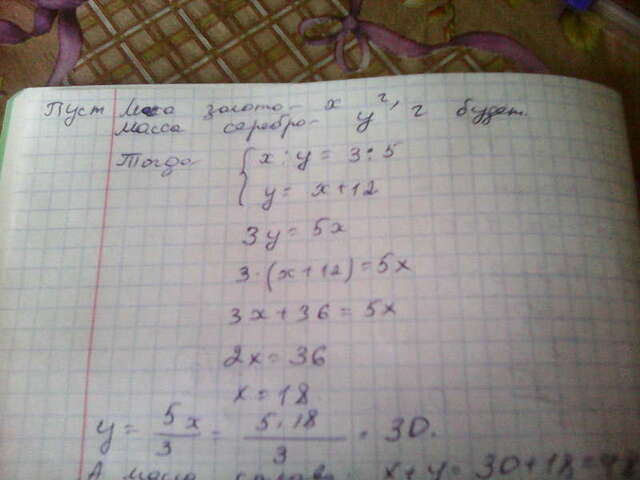 Пуст Маса золото- x г,
масса серебро- y г будет.
Тогда x : y = 3 : 5
y = x + 12
3y = 5x
3·(x+12) = 5x
3x + 36 = 5x
2x = 36
x = 18
y = 5x/3 = 5·18/3 = 30.
А масса x+y = 30+18=48